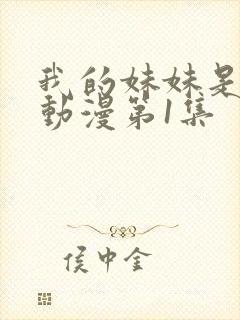 我的妹妹是
動漫第1集
侯中金